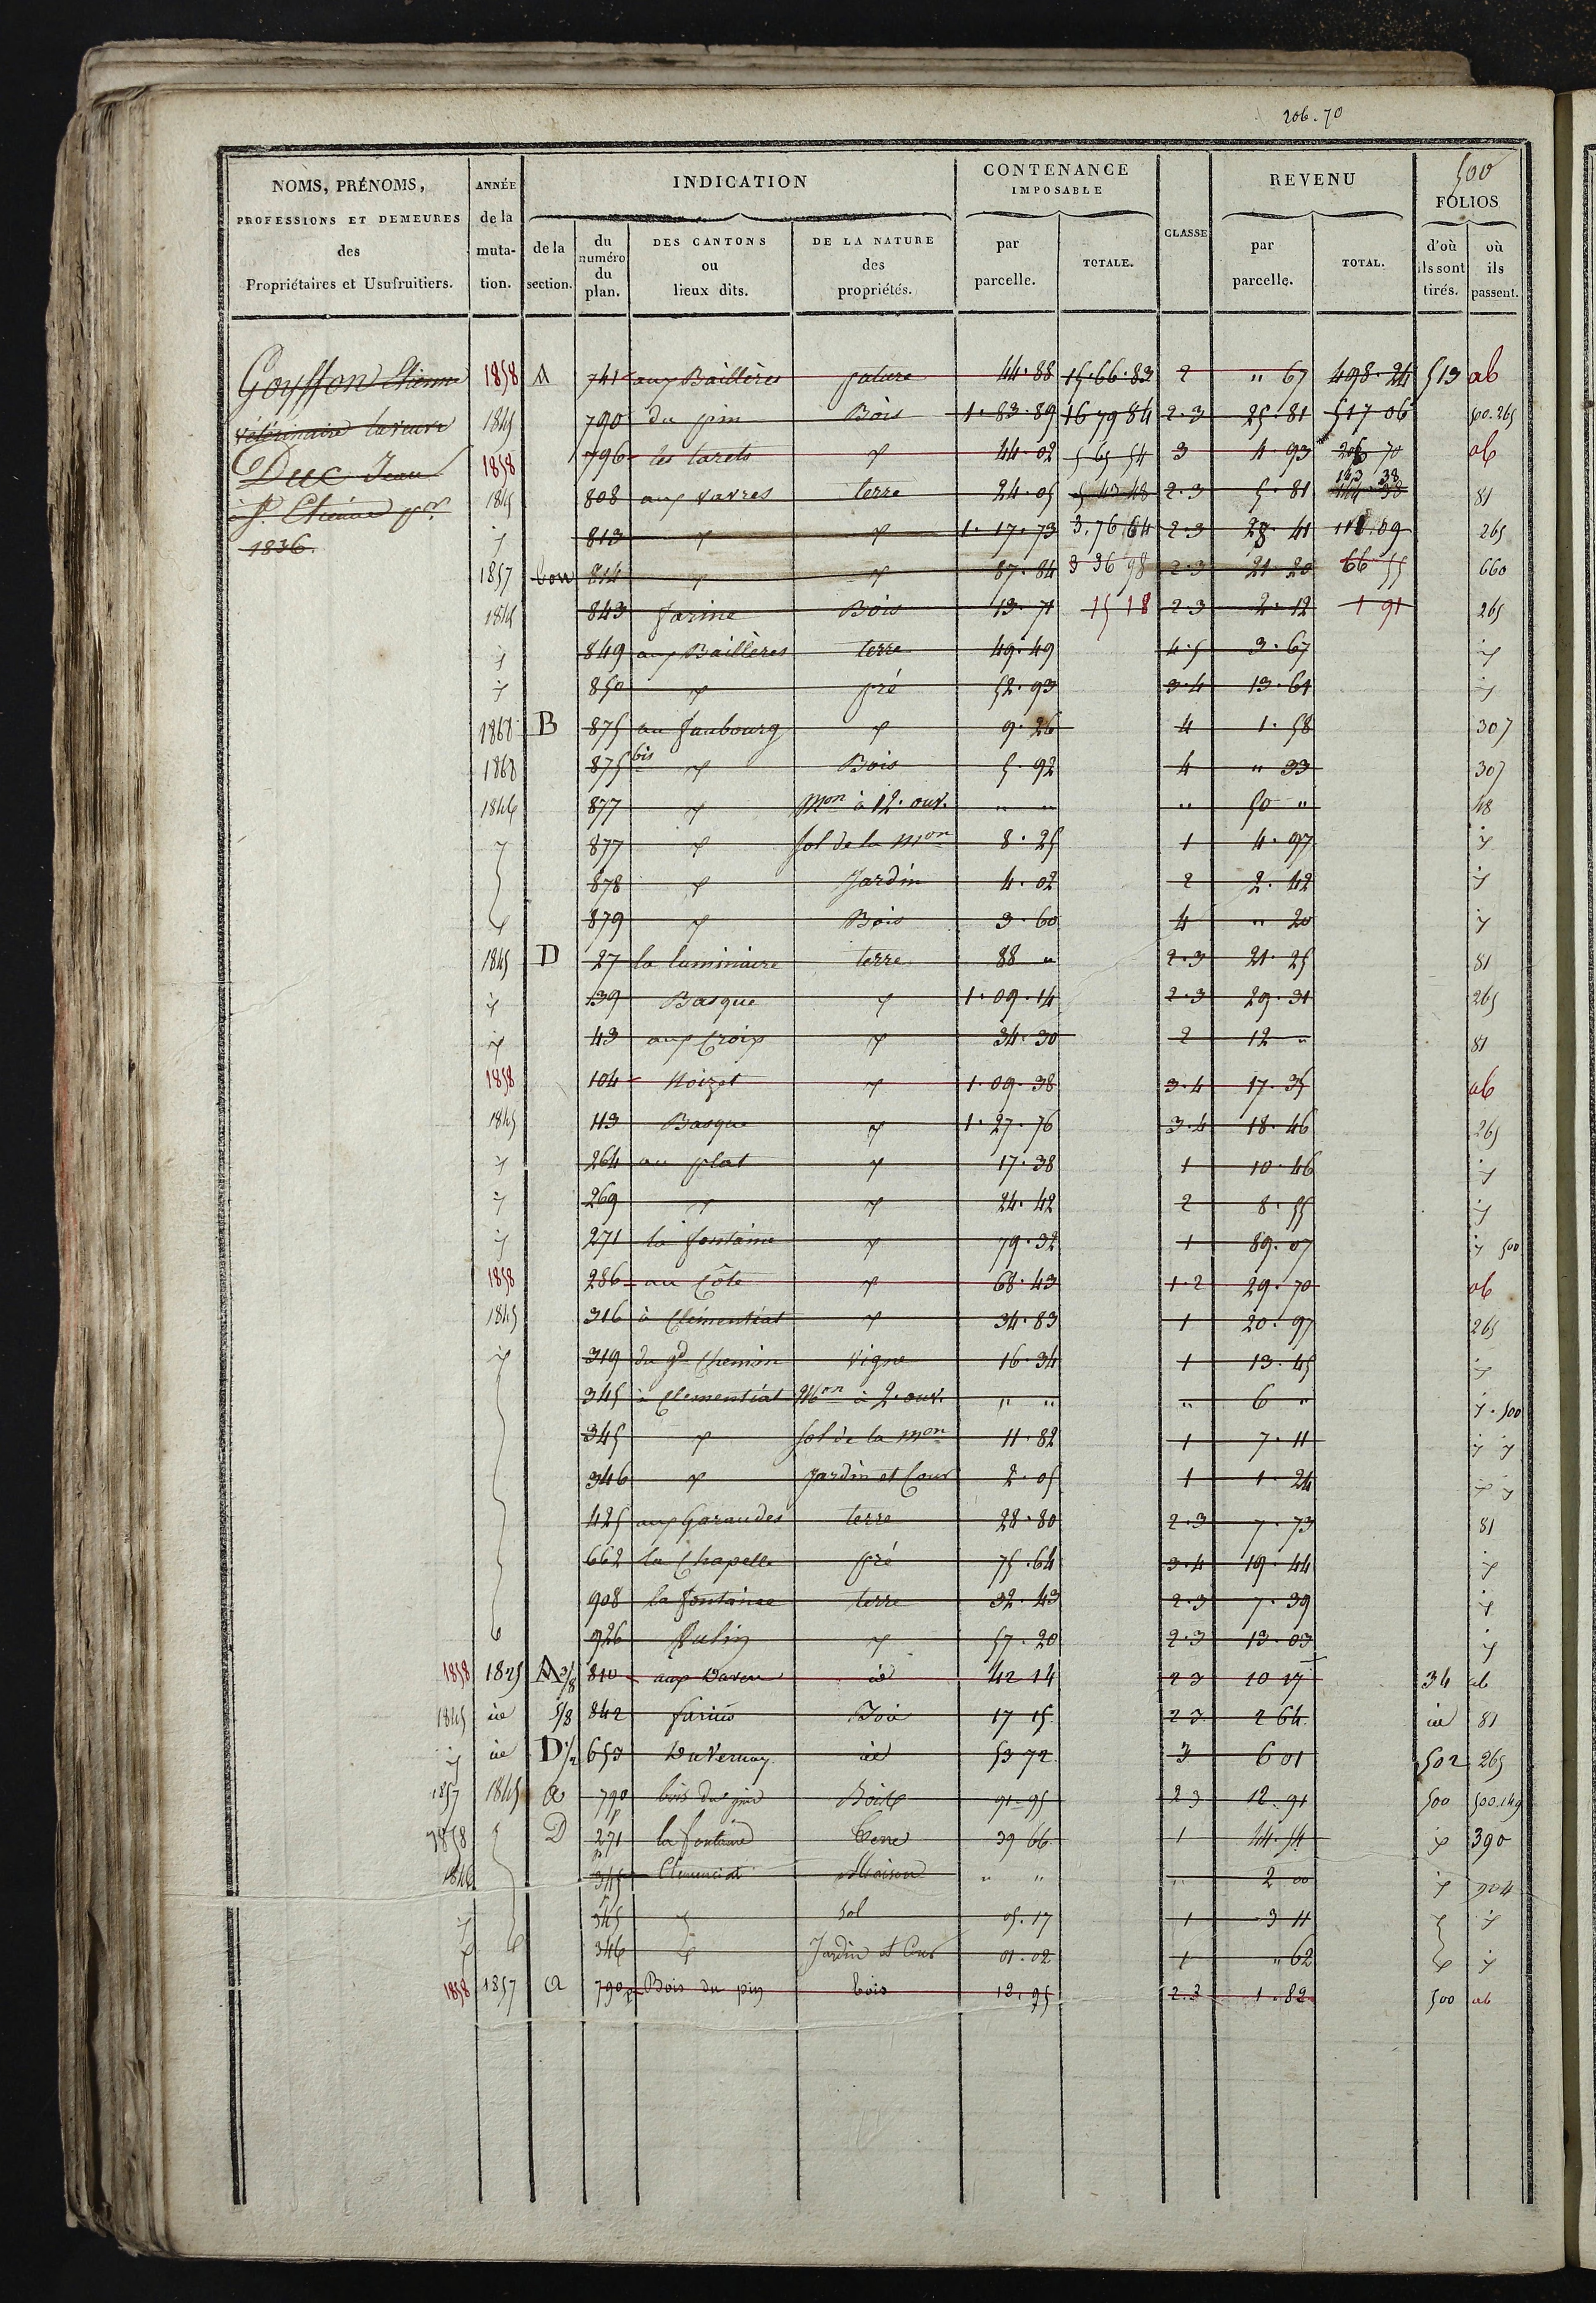 206.70
500
NOMS, PRÉNOMS, PROFESSIONS ET DEMEURES des Propriétaires et Usufruitiers.
ANNÉE de la mutation.
INDICATION
de la section.
du numéro du plan.
DES CANTONS ou lieux dits.
DE LA NATURE des propriétés.
CONTENANCE IMPOSABLE
par parcelle.
TOTALE.
CLASSE
REVENU
par parcelle.
TOTAL.
FOLIOS
d'où ils sont tirés.
où ils passent.
Goyffon Etienne
vétérinaire la veuve
Duc Jean
à St. Etienne
1836
1858 A 741 aux Baillères pature 44.88 15.66.83 2 " 67 498.24 513 ab
1845 790 du pin Bois 1.83.89 16 79 84 2.3 25.81 517 06 500.265
1858 796 les tarets y 44.02 5 65 54 3 4.93 206 70 ab
1845 808 aux vavres terre 24.05 5 43 48 2.3 5.81 143 38 81
y 813 y y 1.17.73 3.76.64 2.3 28.41 111.09 265
1857 814 y y 87.84 3 36 98 2.3 21.20 66 55 660
1845 843 farine Bois 13.71 15 18 2.3 2.12 1 91 265
y 849 aux Baillères terre 49.49 4.5 3.67 y
y 850 y pré 52.93 3.4 13.61 y
1868 B 875 au faubourg y 9.26 4 1.58 307
1868 875 bis y Bois 5.92 4 " 33 307
1846 877 y Mon à 12. ouv. " " " 50 " 48
y 877 y sol de la Mon 8.25 1 4.97 y
878 y Jardin 4.02 2 2.42 y
879 y Bois 3.60 4 " 20 y
1845 D 27 la luminaire terre 88 " 2.3 21.25 81
y 39 Basque y 1.09.14 2.3 29.31 265
y 43 aux Croix y 34.30 2 12 " 81
1858 104 Noizet y 1.09.38 3.4 17.35 ab
1845 113 Basque y 1.27.76 3.4 18.46 265
y 264 au plat y 17.38 1 10.46 y
y 269 y y 24.42 2 8.55 y
y 271 la fontaine y 79.32 1 89.07 y 500
1858 286 au Côte y 68.43 1.2 29.70 ab
1845 316 à Clémentiat y 34.83 1 20.97 265
y 319 du gd Chemin vigne 16.34 1 13.45 y
345 à Clementiat Mon à 2. ouv. " " " 6 " y.500
345 y sol de la Mon 11.82 1 7.11 y y
346 y Jardin et Cour 2.05 1 1.24 y y
425 aux Garaudes terre 28.80 2.3 7.73 81
662 la Chapelle pré 75.64 3.4 19.44 y
908 la fontaine terre 32.43 2.3 7.39 y
926 y 57.20 2.3 13.03 y
1858 1825 A 3/8 810 aux id 42 14 2 3 10 17 34 ab
1845 id 5/8 842 farine Bois 17 15 2 3 2 64 id 81
y id D 1/2 653 Duvernay id 53 72 3 6 01 502 265
1857 1845 a 790 p bois du pin Bois 91.95 2 3 12.91 500 500.149
1858 D 271 p la fontaine terre 39 66 1 44.54 y 390
1846 345 p Clemenciat Maison " " " 2 00 y 904
y 345 y sol 05.17 1 3 11 y
y 346 y Jardin et Cour 01.02 1 " 62 y y
1858 1857 a 790 p Bois du pin bois 12.95 2.3 1.82 500 ab